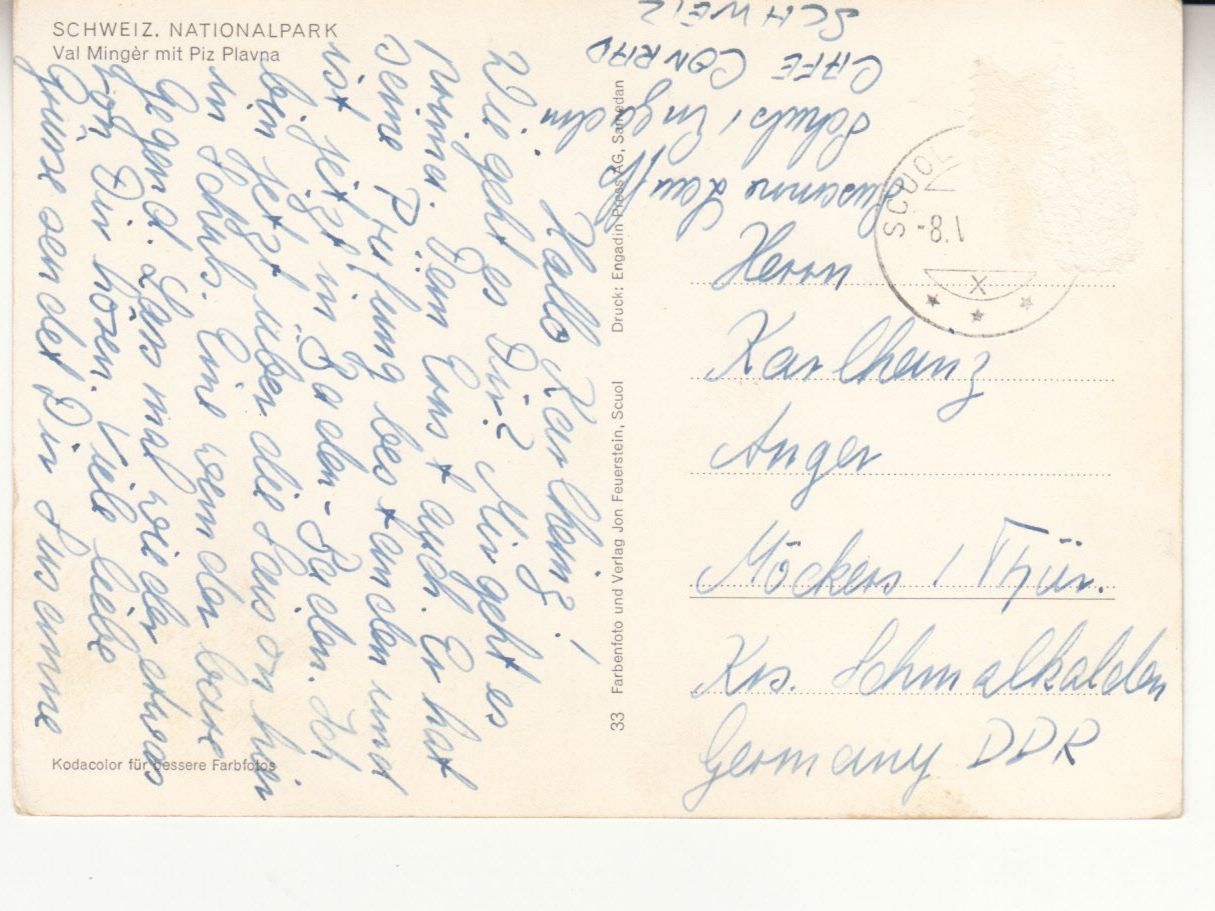 SCHWEIZ. NATIONALPARK
Val Mingèr mit Piz Plavna
Hallo Karlheinz!
Wie geht es Dir? Mir geht es
prima. Dem Ernst auch. Er hat
seine Prüfung bestanden und
ist jetzt in Baden-Baden. Ich
bin jetzt über die Saison hier
in Schuls. Eine wunderbare
Gegend. Lass mal wieder etwas
von Dir hören. Viele liebe
Grüsse sendet Dir Susanne
Kodacolor für bessere Farbfotos
33 Farbenfoto und Verlag Jon Feuerstein, Scuol Druck: Engadin Press AG, Samedan
Susanne
Schuls / Engadin
CAFE CONRAD
SCHWEIZ
SCUOL
-8.1
X
Herrn
Karlheinz
Anger
Möckers / Thür.
Krs. Schmalkalden
Germany DDR